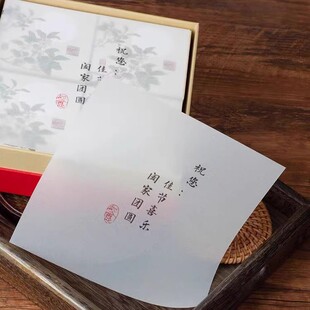 祝您：
佳节
阖家团圆
祝您：
佳节喜乐
阖家团圆